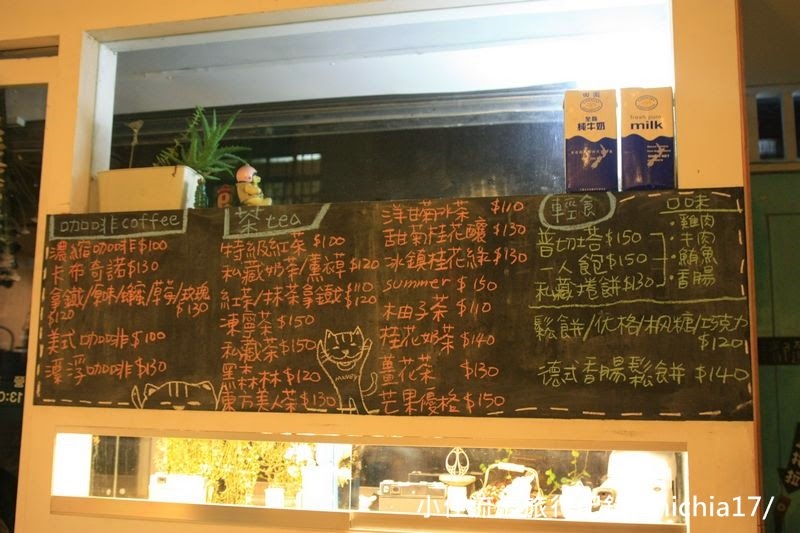 咖啡coffee
濃縮咖啡$100
卡布奇諾$130
拿鐵/原味/蜂蜜/草莓/玫瑰
$120 $130
美式咖啡$100
漂浮咖啡$130
茶tea
特級紅茶 $100
私藏奶茶/薰衣草$120
紅茶/抹茶拿鐵 $110 $120
凍寧茶 $150
私藏茶 $150
黑森林 $120
東方美人茶 $130
洋甘菊茶 $110
甜菊桂花釀 $130
冰鎮桂花綠 $130
summer $150
柚子茶 $110
桂花奶茶 $140
薑花茶 $130
芒果優格 $150
輕食
普切塔 $150
一人飽 $150
私藏捲餅 $130
口味
·雞肉
·牛肉
·鮪魚
·香腸
鬆餅/优格/枫糖/巧克力
$120
德式香腸鬆餅 $140
全脂
純牛奶
fresh pure
milk
小
旅行
michia17/